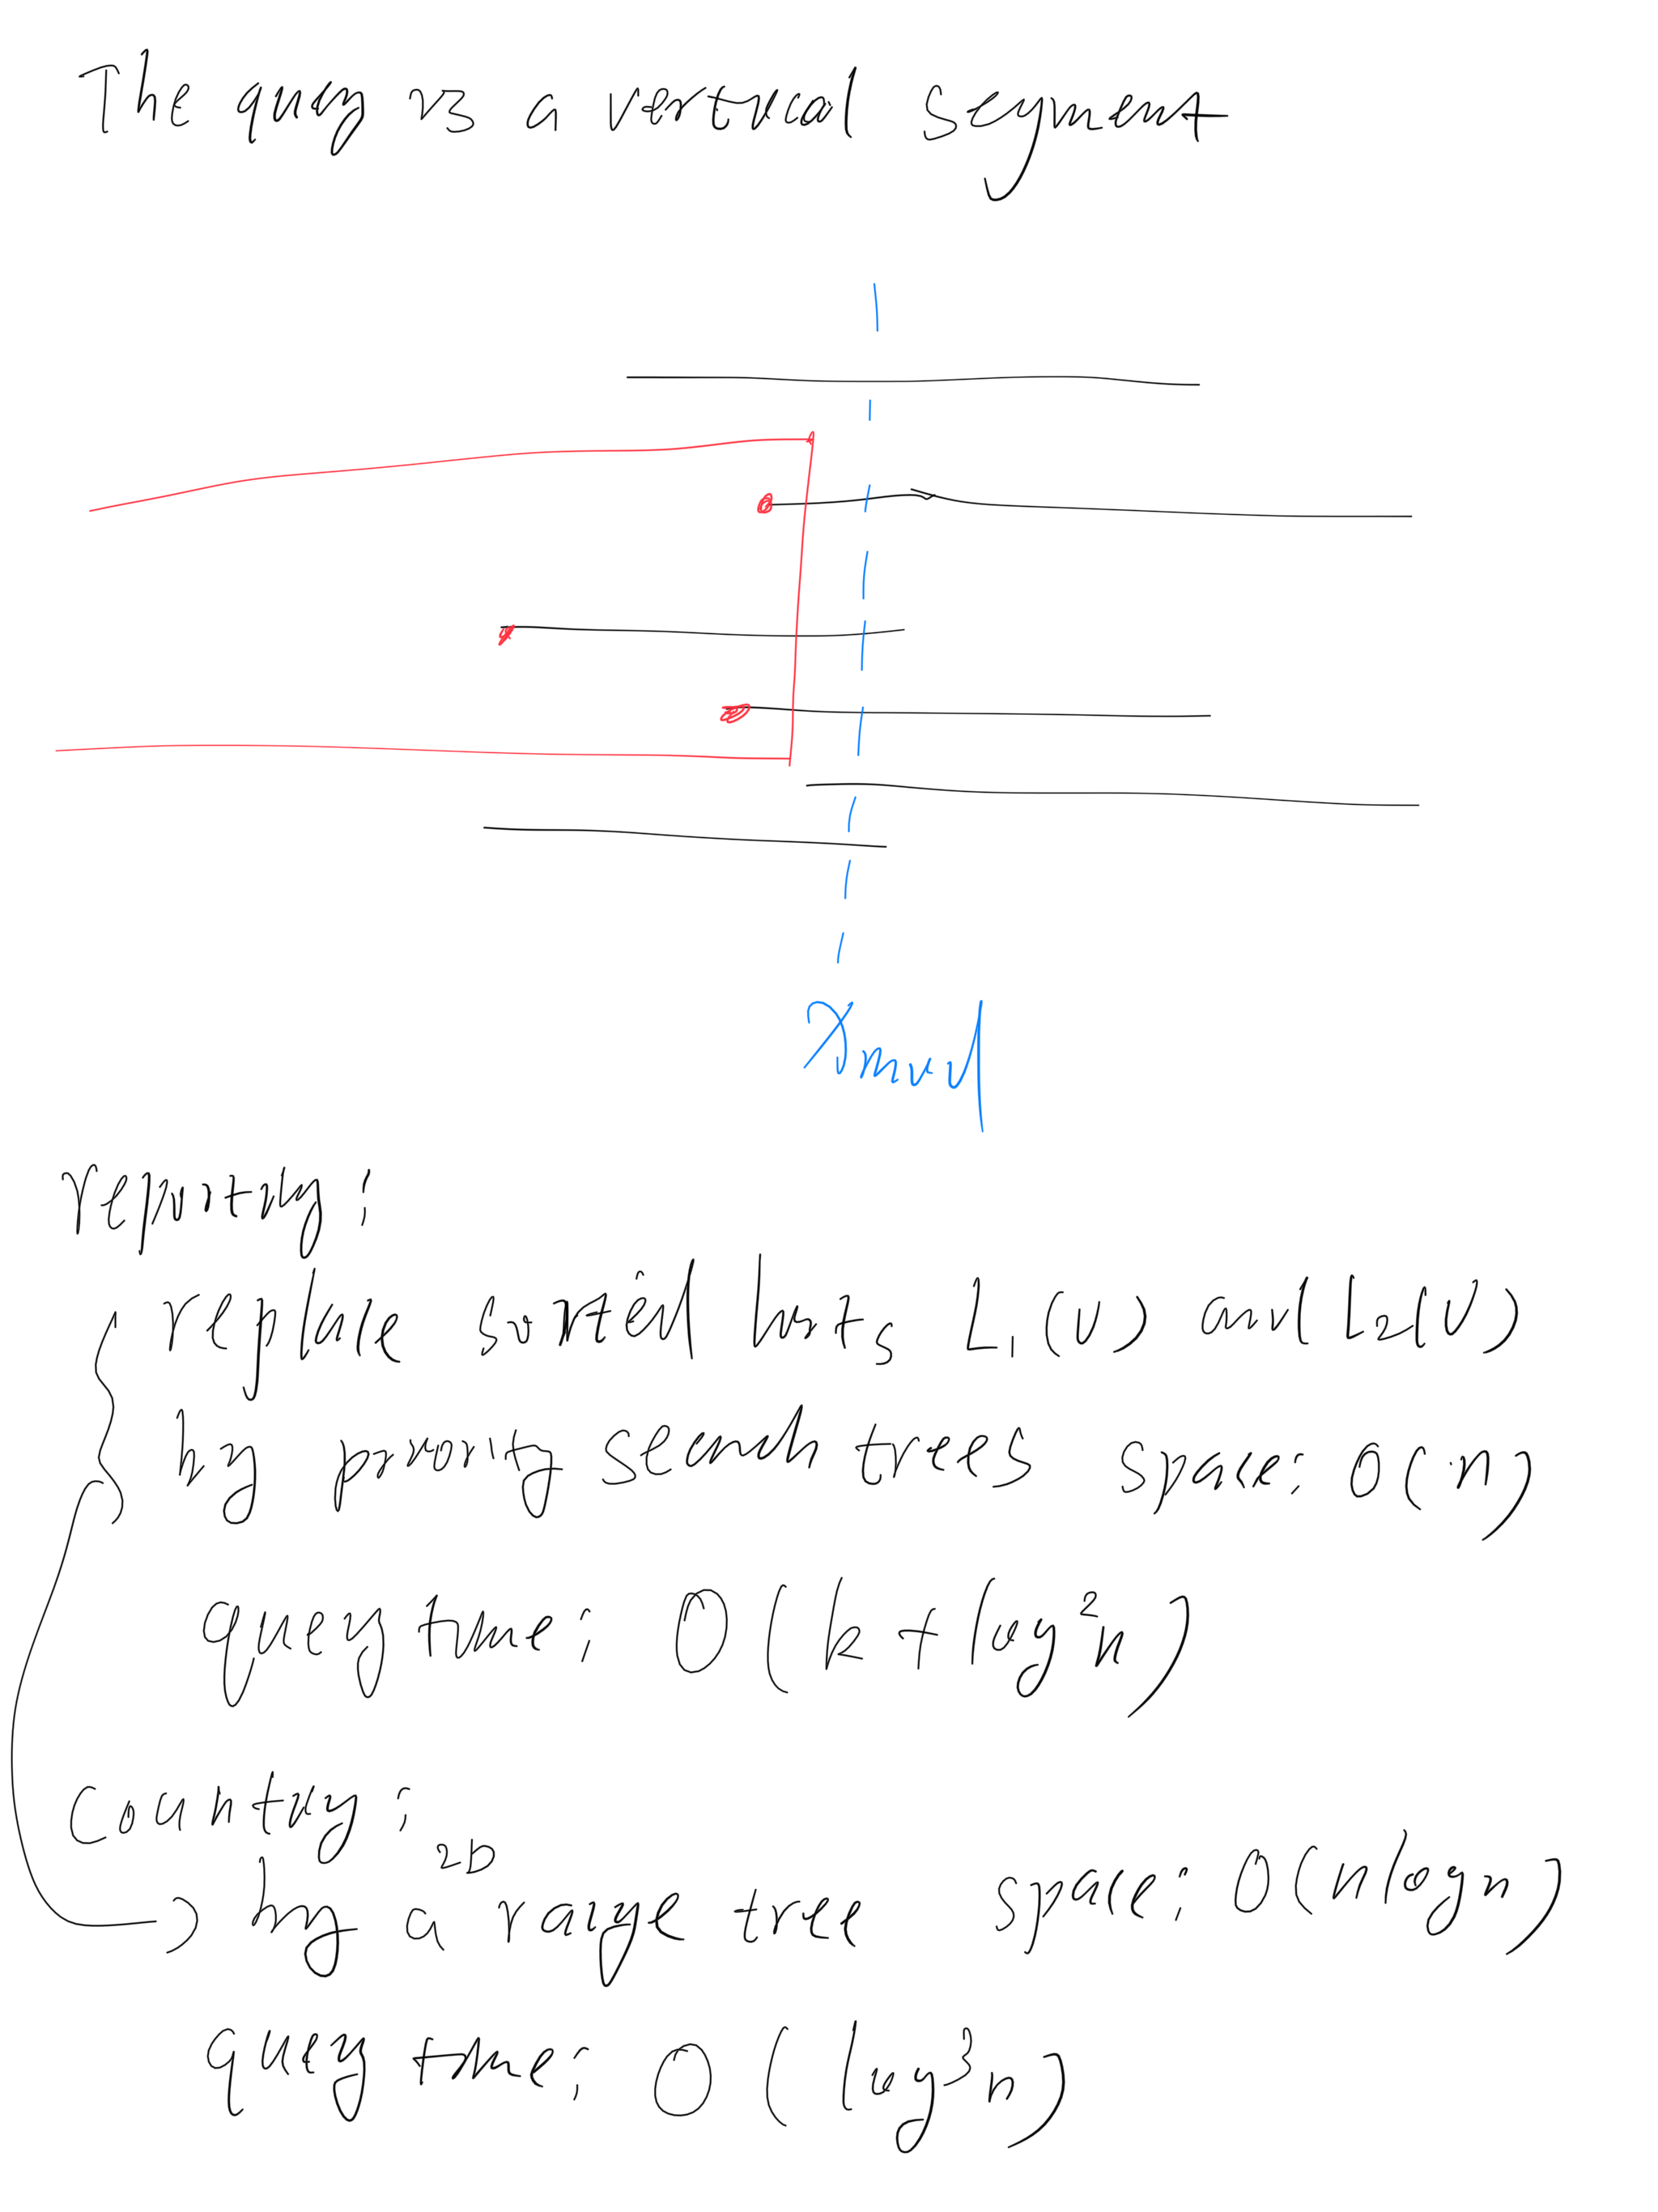 The query is a vertical segment
Xmid
reporting:
replace sorted lists L1(v) and L2(v)
by priority search trees space: O(n)
query time: O(k + log²n)
Counting:
2D
by a range tree space: O(n log n)
query time: O(log³n)